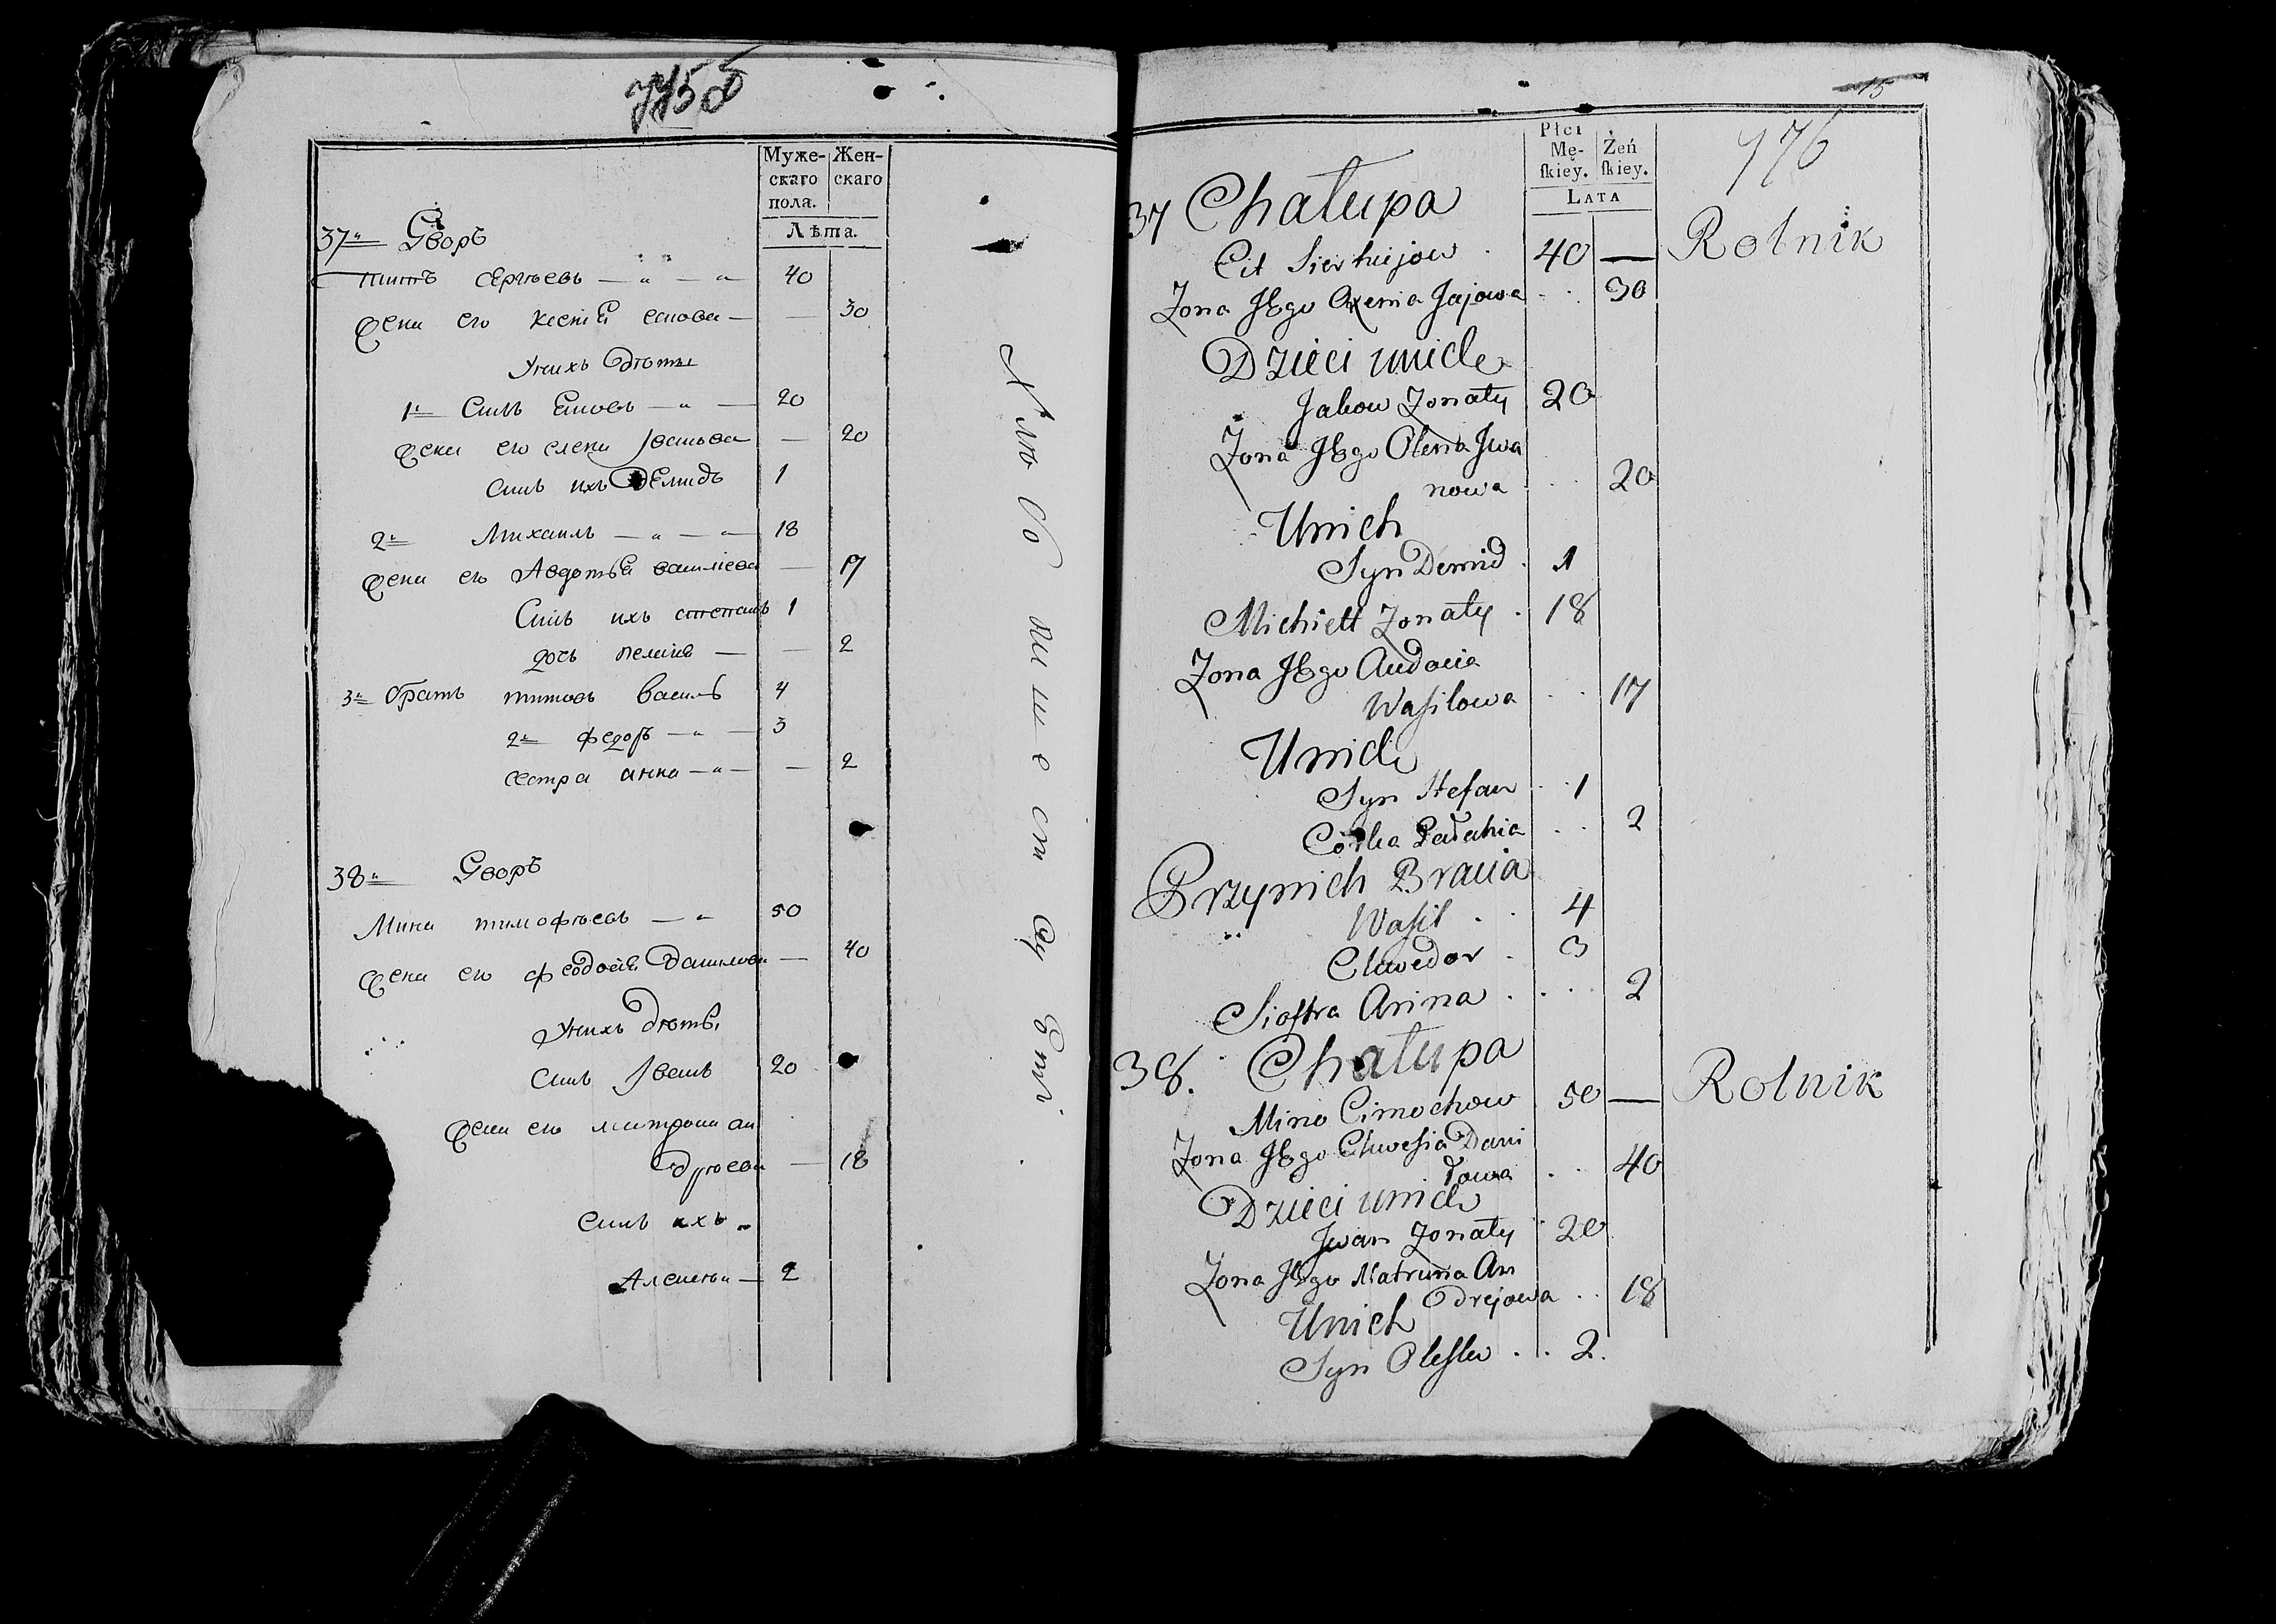 Муже- Жен-
скаго скаго
пола.
Лѣта.
37" Дворъ
титъ сергѣевъ — " — " 40
жена его ксенія — — 30
Унихъ дѣты
1" Сынъ — " — 20
жена его елена Іванова — 20
сынъ ихъ Демидъ 1
2" Михаилъ — " — " — 18
жена его Авдотья василіева — 17
Сынъ ихъ степанъ 1
дочь — — 2
3" братъ титовъ василь 4
2" федоръ — " — 3
сестра анна — " — — 2
38" Дворъ
Мина тимофѣевъ — " 50
жена его федосія Данилова — 40
Унихъ дѣты
сынъ Іванъ 20
жена его матрона ан
дрѣева — 18
сынъ ихъ
Алексѣй — 2
15
776
Płci
Mę- Żeń
ſkiey. ſkiey.
LATA
37 Chałupa
Cit Sierhiejow . 40 — Rolnik
Zona Jego Axenia . . 30
Dzieci unich
Jakow Zonaty 20
Zona Jego Olena Jwa
nowa . . . 20
Unich
Syn Demid . 1
Michieł Zonaty . 18
Zona Jego Audocia
Waſilowa . . 17
Unich
Syn Stefan . . 1
Córka Pałahia . . 2
Przynich Bracia
Waſil . . 4
Chwedor . 3
Sioſtra Anna . . . . 2
38. Chałupa
Mino Cimochow 50 — Rolnik
Zona Jego Chweſia Dani
łowa . . 40
Dzieci unich
Jwan Zonaty . 20
Zona Jego Matruna An
drejowa . . 18
Unich
Syn Oleſky . . 2.